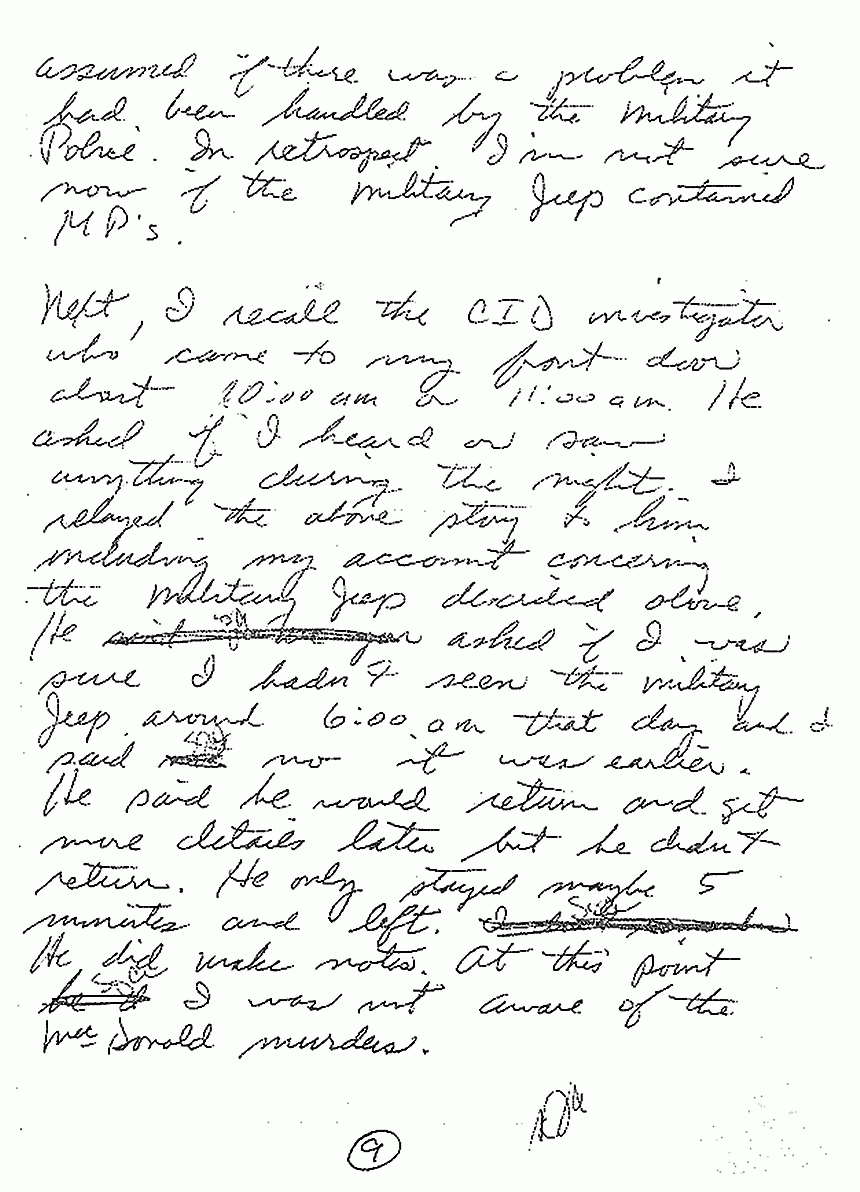 assumed if there was a problem it
had been handled by the Military
Police. In retrospect I'm not sure
now if the Military Jeep contained
MP's.
Next, I recall the CID investigator
who came to my front door
about 10:00 am or 11:00 am. He
asked if I heard or saw
anything during the night. I
relayed the above story to him
including my account concerning
the Military Jeep described above.
He asked if I was
sure I hadn't seen the military
Jeep around 6:00 am that day and I
said no it was earlier.
He said he would return and get
more details later but he didn't
return. He only stayed maybe 5
minutes and left.
He did make notes. At this point
I was not aware of the
MacDonald murders.
9